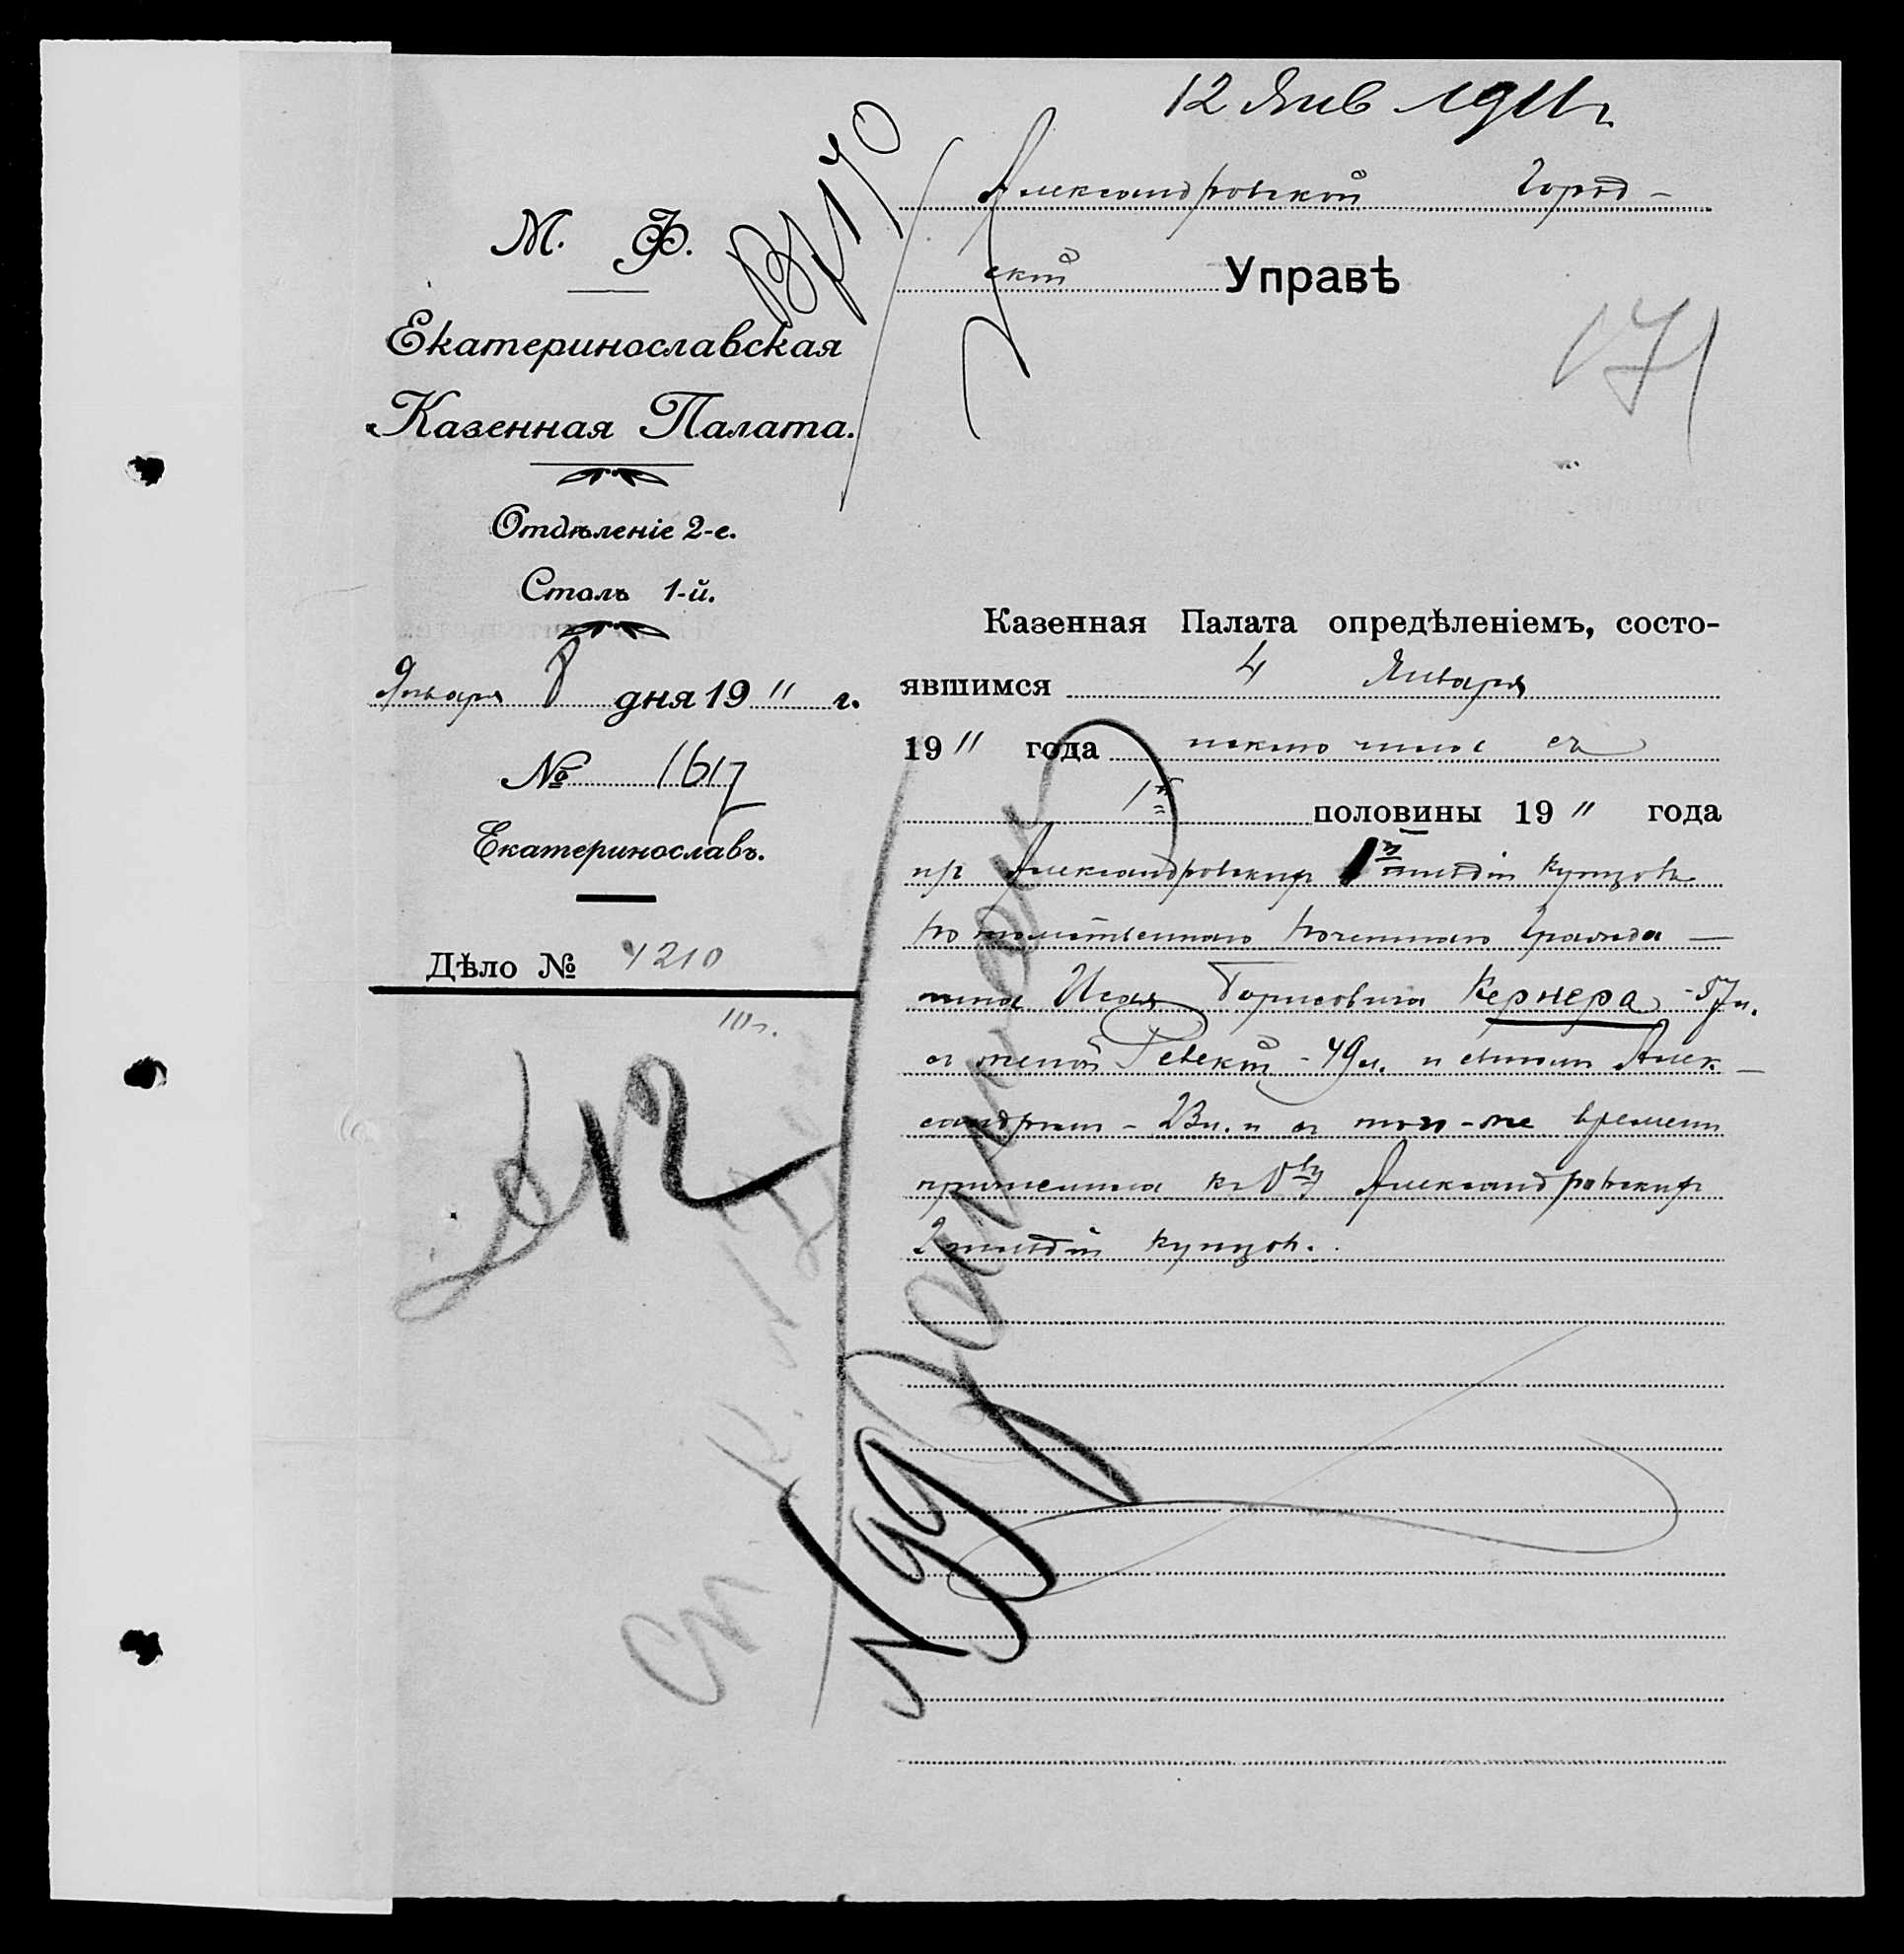 12 Янв 1911 г.
Вх 170
Александровской Город-
ской Управѣ
171
М. Ф.
Екатеринославская
Казенная Палата.
Отдѣленіе 2-е.
Столъ 1-й.
Января 8 дня 19 11 г.
№ 1617
Екатеринославъ.
Дѣло № 4210
10 г.
Казенная Палата опредѣленіемъ, состо-
явшимся 4 Января
19 11 года исключила съ
1й половины 19 11 года
изъ Александровских 1й гильдіи купцовъ
потомственнаго почетнаго гражда-
нина Исая Борисовича Кернера - 57 л.
съ женой Ревеккой - 49 л. и сыном Алек-
сандром - 23 л. и съ того-же времени
причислила къ Александровских
2 гильдіи купцов.
12